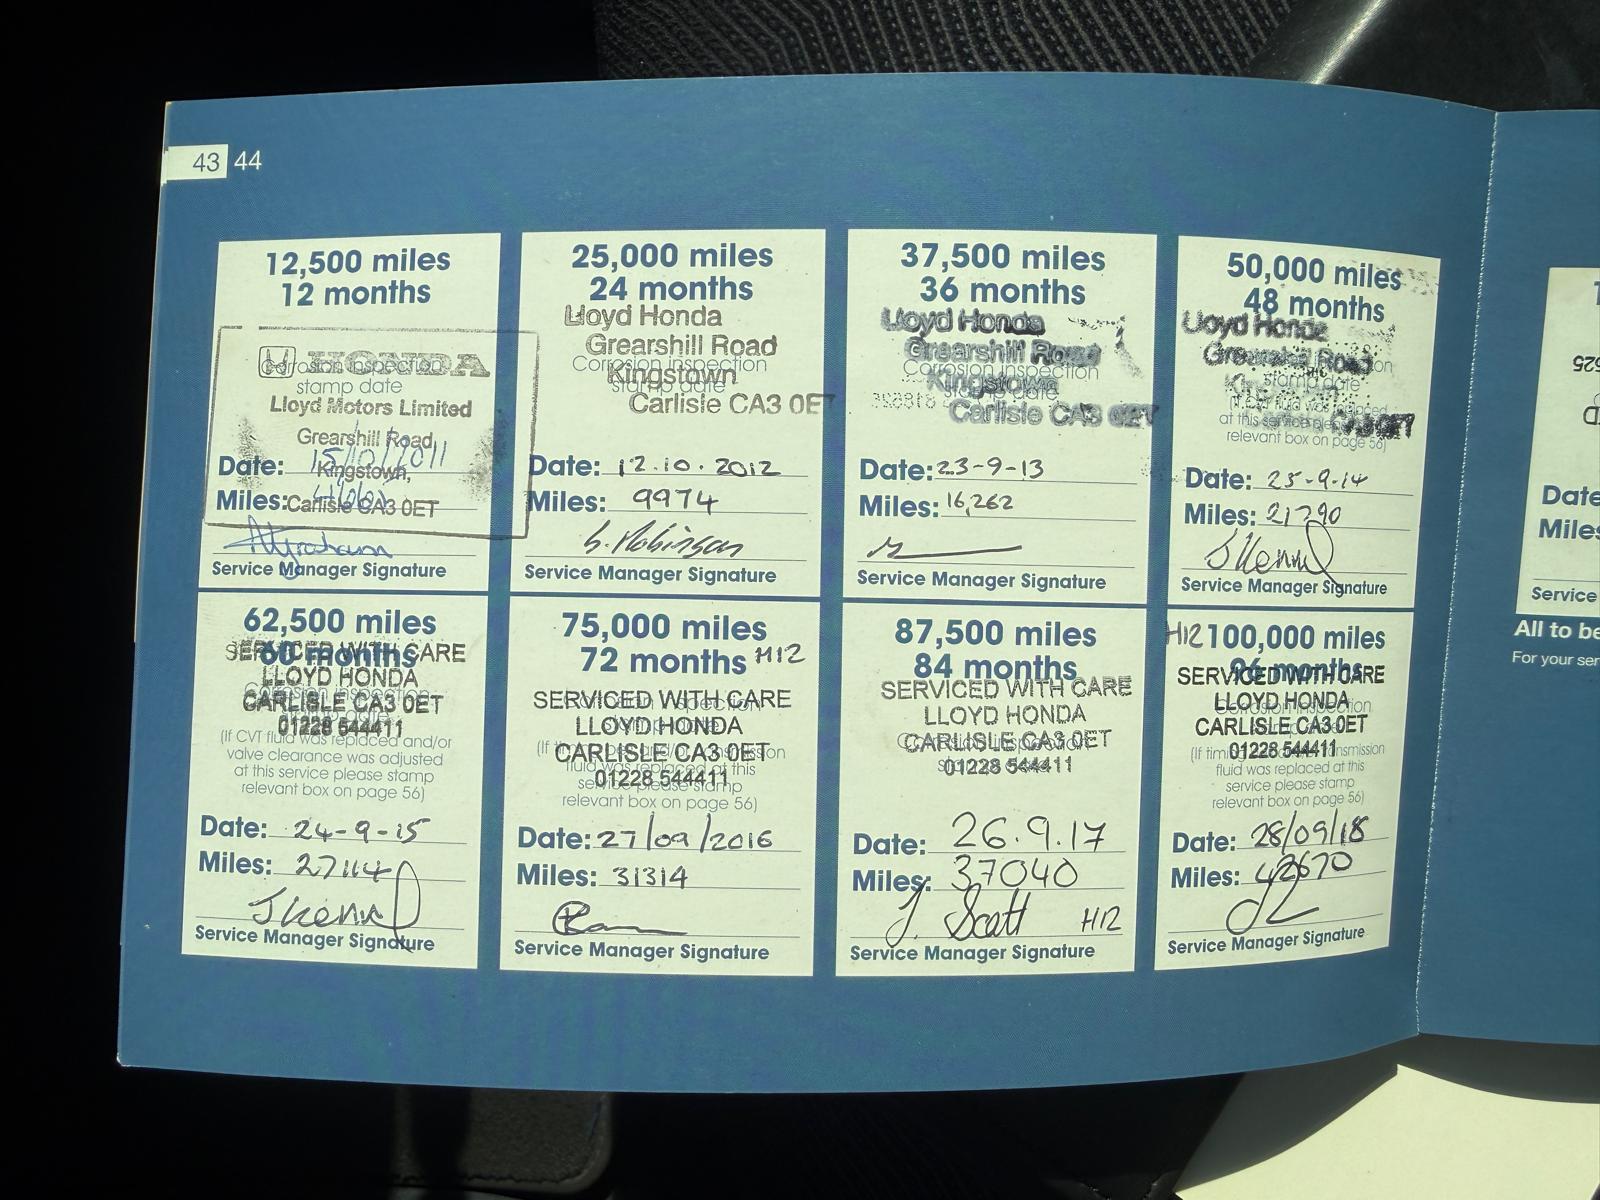 43 44
12,500 miles
12 months
HONDA
Corrosion inspection
stamp date
Lloyd Motors Limited
Grearshill Road,
Kingstown,
Carlisle CA3 0ET
Date: 15/10/2011
Miles:
Service Manager Signature
25,000 miles
24 months
Lloyd Honda
Grearshill Road
Corrosion inspection
Kingstown
stamp date
Carlisle CA3 0ET
Date: 12.10.2012
Miles: 9974
S. Robinson
Service Manager Signature
37,500 miles
36 months
Lloyd Honda
Grearshill Road
Corrosion inspection
Kingstown
stamp date
Carlisle CA3 0ET
Date: 23-9-13
Miles: 16,262
Service Manager Signature
50,000 miles
48 months
Lloyd Honda
Grearshill Road
stamp date
at this service please
relevant box on page 56)
Date: 25-9-14
Miles: 21790
Service Manager Signature
62,500 miles
60 months
SERVICED WITH CARE
LLOYD HONDA
Corrosion inspection
CARLISLE CA3 0ET
stamp date
01228 544411
(If CVT fluid was replaced and/or
valve clearance was adjusted
at this service please stamp
relevant box on page 56)
Date: 24-9-15
Miles: 27114
Service Manager Signature
75,000 miles
72 months H12
SERVICED WITH CARE
LLOYD HONDA
CARLISLE CA3 0ET
fluid was replaced at this
01228 544411
service please stamp
relevant box on page 56)
Date: 27/09/2016
Miles: 31314
Service Manager Signature
87,500 miles
84 months
SERVICED WITH CARE
LLOYD HONDA
CARLISLE CA3 0ET
01228 544411
Date: 26.9.17
Miles: 37040
J. Scott H12
Service Manager Signature
H12 100,000 miles
96 months
SERVICED WITH CARE
LLOYD HONDA
Corrosion inspection
CARLISLE CA3 0ET
01228 544411
fluid was replaced at this
service please stamp
relevant box on page 56)
Date: 28/09/18
Miles: 42670
Service Manager Signature
Date
Miles
Service
All to be
For your ser